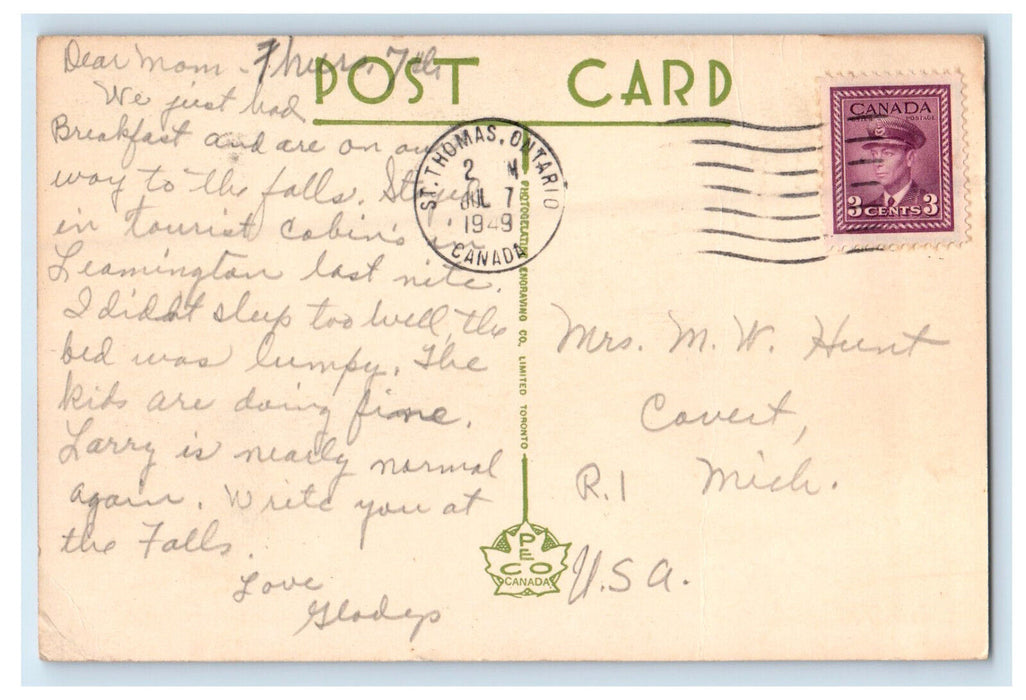 POST CARD
Dear Mom - Thurs. 7th
We just had
Breakfast and are on our
way to the falls. Stayed
in tourist cabin's in
Leamington last nite.
I didn't sleep too well, the
bed was lumpy. The
kids are doing fine.
Larry is nearly normal
again. Write you at
the Falls.
Love
Gladys
ST. THOMAS, ONTARIO
2 M
JUL 7
1949
CANADA
CANADA
POSTAGE
3 CENTS 3
PHOTOGELATINE ENGRAVING CO. LIMITED TORONTO
PECO
CANADA
Mrs. M. W. Hunt
Covert,
R.1 Mich.
U.S.A.